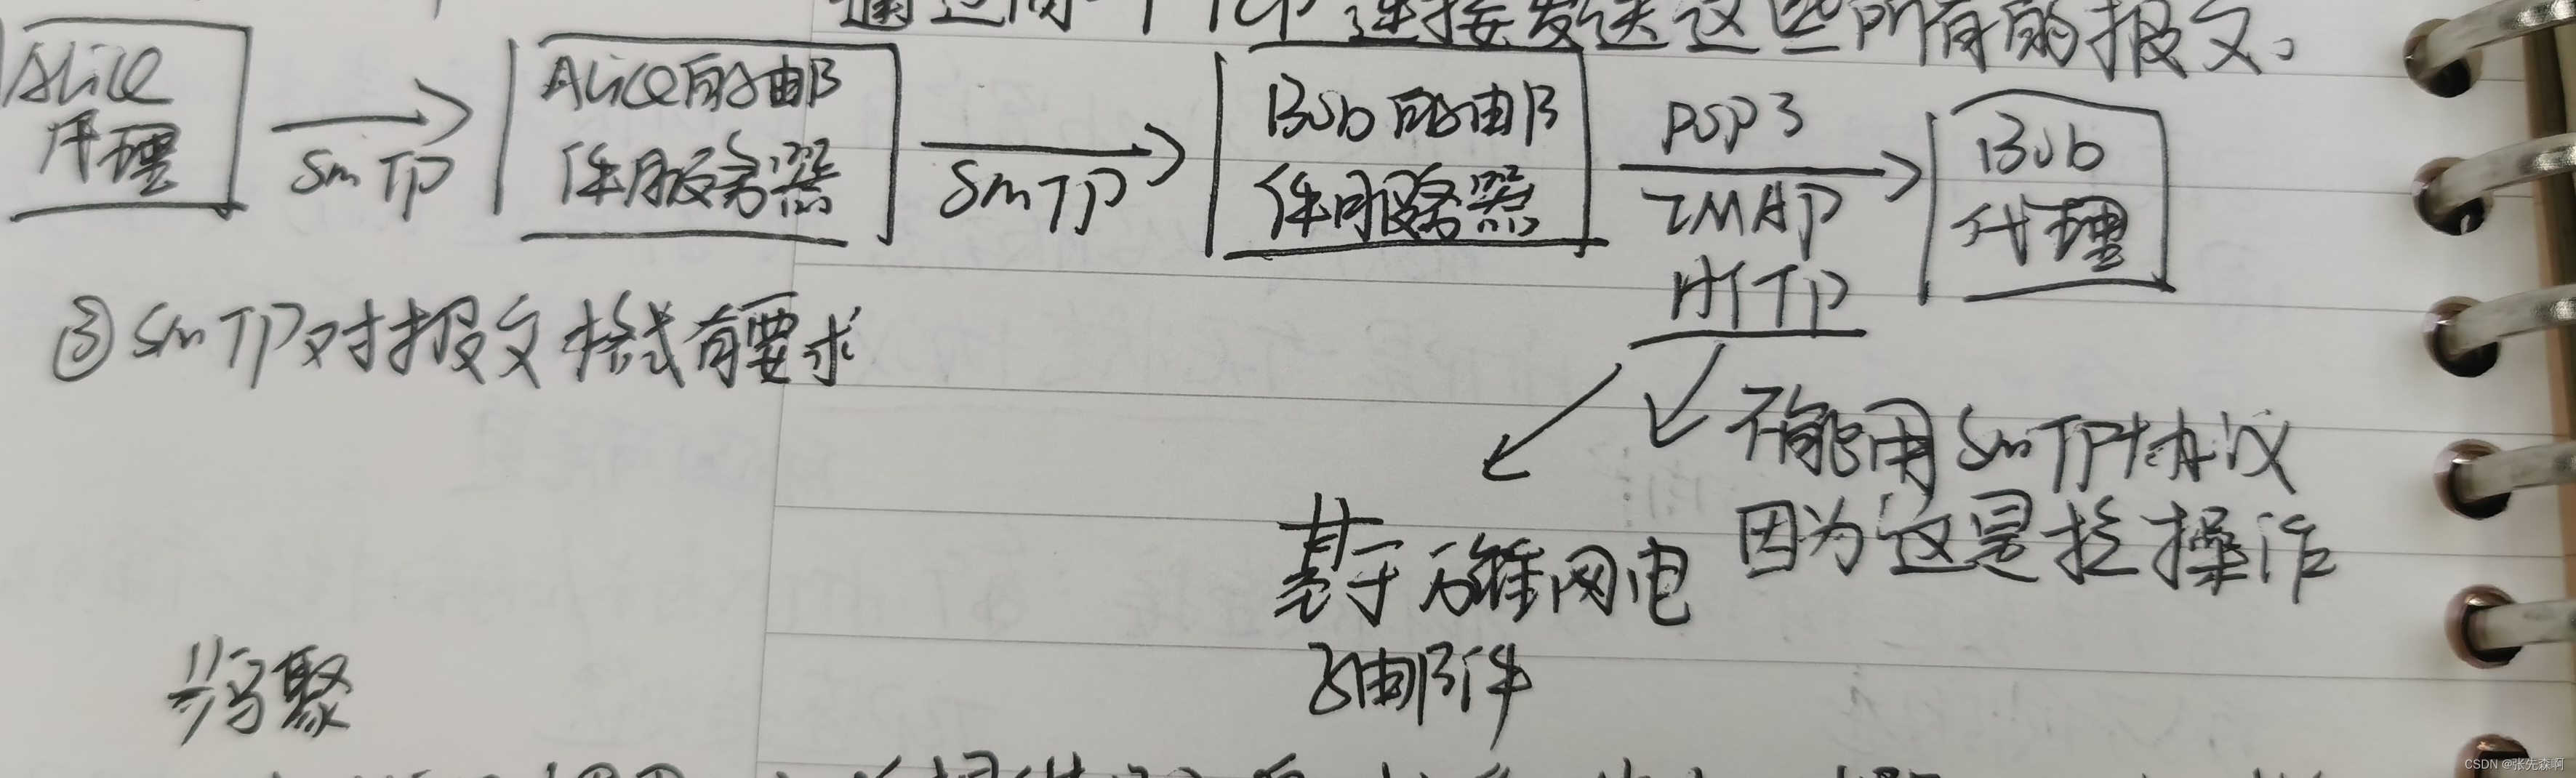 通过同一个TCP连接发送这些所有的报文。
Alice
代理
SmTP
Alice的邮
件服务器
SmTP
Bob的邮
件服务器
POP3
IMAP
HTTP
Bob
代理
③SmTP对报文格式有要求
不能用SmTP协议
因为这是拉操作
基于万维网电
子邮件
步骤
CSDN @张先森啊